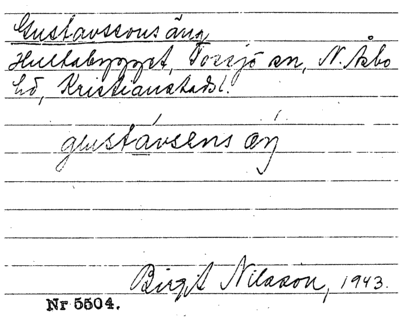 Gustavssons äng
Hultabygget, Tossjö sn, N. Åsbo
hd, Kristianstads l.
gustávsens æŋ́
Birgit Nilsson, 1943.
Nr 5504.